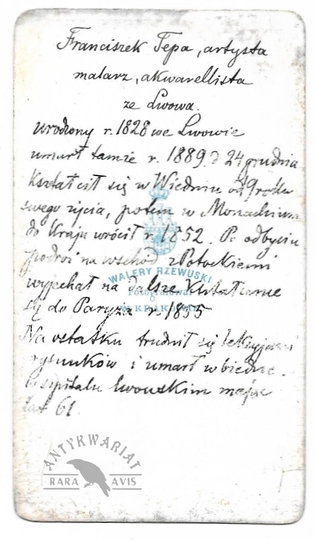 Franciszek Tepa, artysta
malarz, akwarellista
ze Lwowa.
urodzony r. 1828 we Lwowie
umarł tamże r. 1889. d 24 grudnia
Kształcił się w Wiedniu od 19 roku
swego życia, potem w Monachium
do kraju wrócił r. 1852. Po odbyciu
podróż na wschód z Potockiemi
WALERY RZEWUSKI
wyjechał na dalsze kształcenie
się do Paryża r. 1855
Na ostatku trudnił się lekcyjami
rysunków i umarł w biedzie
w szpitalu lwowskim mając
lat 61.
ANTYKWARIAT
RARA AVIS